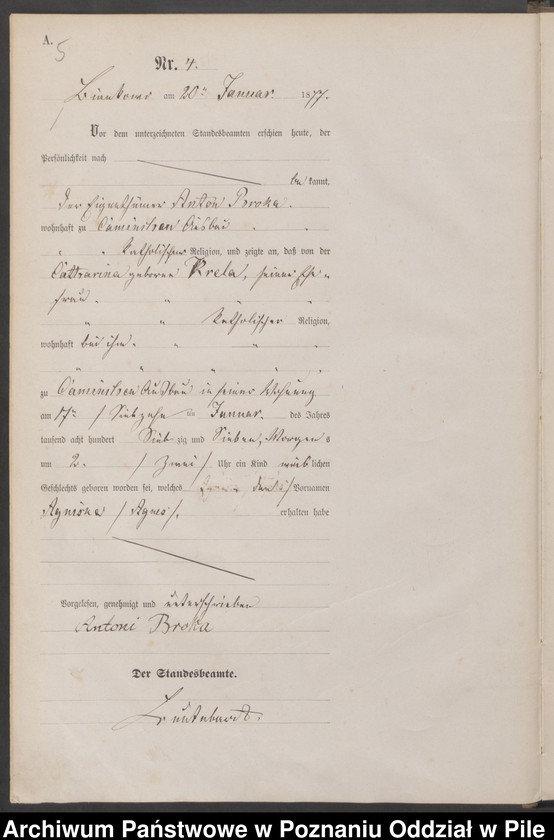 A.
5
Nr. 4.
am 20ten Januar 1877.
Vor dem unterzeichneten Standesbeamten erschien heute, der
Persönlichkeit nach
be kannt,
der Eigenthümer Anton Broka.
wohnhaft zu Caminitzen Ausbau
katholischer Religion, und zeigte an, daß von der
Catharina geborene Kreta, seiner Ehe-
frau
katholischer Religion,
wohnhaft bei ihm
zu Caminitzen Ausbau in seiner Wohnung
am 17ten / Siebzehnten Januar des Jahres
tausend acht hundert Sieb zig und Sieben, Morgens
um 2. / Zwei / Uhr ein Kind weib lichen
Geschlechts geboren worden sei, welches Vornamen
Agniska / Agnes /, erhalten habe
Vorgelesen, genehmigt und unterschrieben
Antoni Broka
Der Standesbeamte.
Archiwum Państwowe w Poznaniu Oddział w Pile